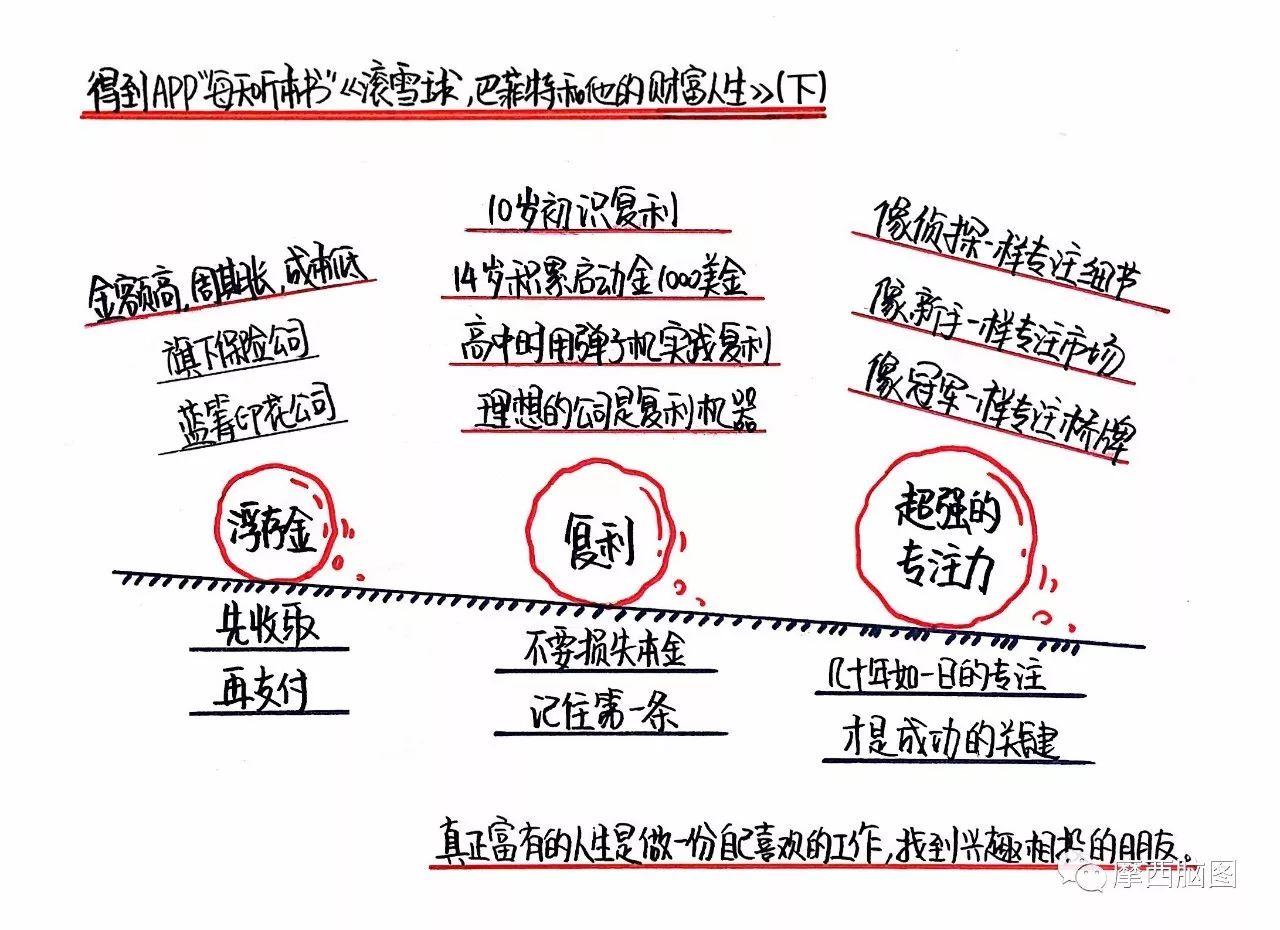 得到APP"每天听本书"《滚雪球,巴菲特和他的财富人生》(下)
金额高,周期长,成本低
旗下保险公司
蓝筹印花公司
浮存金
先收取
再支付
10岁初识复利
14岁积累启动金1000美金
高中时用弹子机实践复利
理想的公司是复利机器
复利
不要损失本金
记住第一条
像侦探一样专注细节
像新手一样专注市场
像冠军一样专注桥牌
超强的
专注力
几十年如一日的专注
才是成功的关键
真正富有的人生是做一份自己喜欢的工作,找到兴趣相投的朋友。
摩西脑图